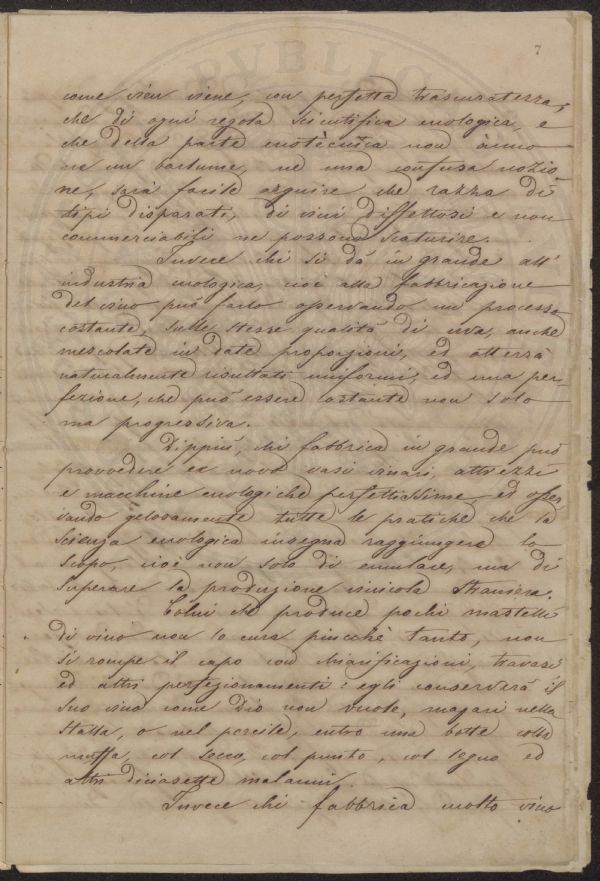 7
come vien viene, con perfetta trascuratezza,
che di ogni regola scientifica enologica, e
che della parte enotècnica non ànno
ne un barlume, ne una confusa nozio
ne, sarà facile arguire che razza di
tipi disparati, di vini diffettosi e non
commerciabili ne possono scaturire.
Invece chi si dà in grande all'
industria enologica, cioè alla fabbricazione
del vino può farlo osservando un processo
costante, sulle stesse qualità di uva, anche
mescolate in date proporzioni, ed otterrà
naturalmente risultati uniformi, ed una per
fezione, che può essere costante non solo
ma progressiva.
Dippiù, chi fabbrica in grande può
provvedere ex novo vasi vinari, attrezzi
e macchine enologiche perfettissime ed osser
vando gelosamente tutte le pratiche che la
scienza enologica insegna raggiungerà lo
scopo, cioè non solo di emulare, ma di
superare la produzione vinicola straniera.
Colui che produce pochi mastelli
di vino non lo cura piucchè tanto, non
si rompe il capo con chiarificazioni, travasi
ed altri perfezionamenti: egli conserverà il
suo vino come Dio non vuole, magari nella
stalla, o nel porcile, entro una botte colla
muffa, col secco, col punto, col legno ed
altri diciasette malanni.
Invece chi fabbrica molto vino
PVBLIC